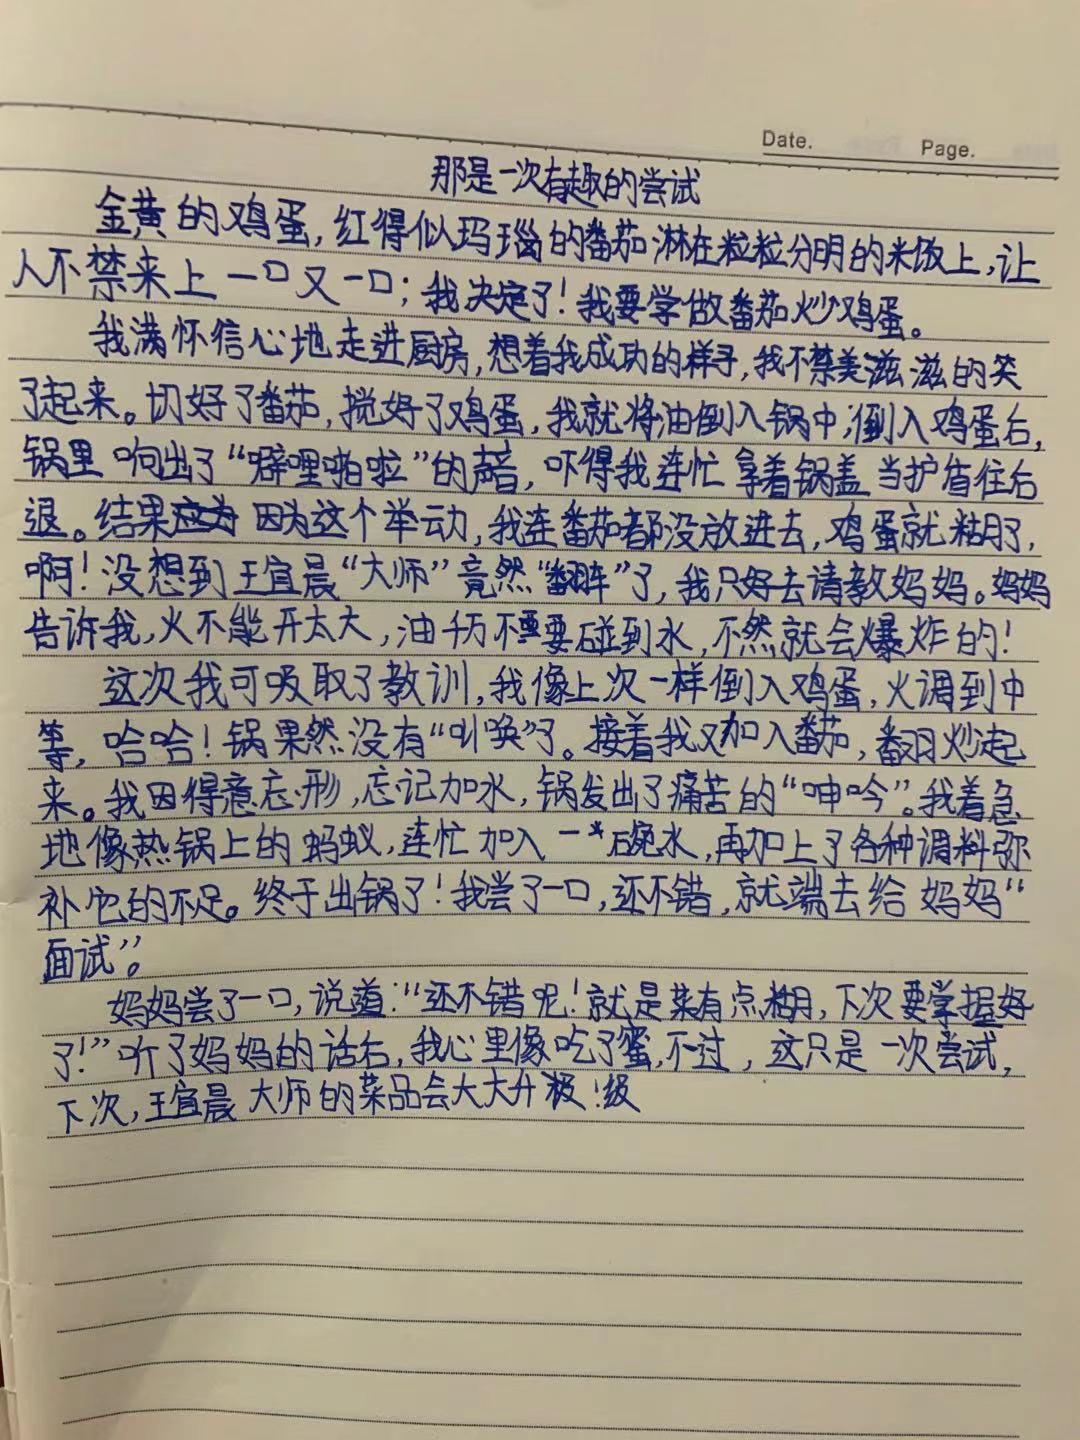 Date.
Page.
那是一次有趣的尝试
金黄的鸡蛋，红得似玛瑙的番茄淋在粒粒分明的米饭上，让
人不禁来上一口又一口；我决定了！我要学做番茄炒鸡蛋。
我满怀信心地走进厨房，想着我成功的样子，我不禁美滋滋的笑
了起来。切好了番茄，搅好了鸡蛋，我就将油倒入锅中；倒入鸡蛋后，
锅里响出了“噼哩啪啦”的声音，吓得我连忙拿着锅盖当护盾往后
退。结果因为这个举动，我连番茄都没放进去，鸡蛋就糊了，
啊！没想到王宜晨“大师”竟然“翻车”了，我只好去请教妈妈。妈妈
告诉我，火不能开太大，油千万不要碰到水，不然就会爆炸的！
这次我可吸取了教训，我像上次一样倒入鸡蛋，火调到中
等，哈哈！锅果然没有“叫唤”了。接着我又加入番茄，翻炒起
来。我因得意忘形，忘记加水，锅发出了痛苦的“呻吟”。我着急
地像热锅上的蚂蚁，连忙加入一碗水，再加上了各种调料弥
补它的不足。终于出锅了！我尝了一口，还不错，就端去给妈妈“
面试”。
妈妈尝了一口，说道：“还不错呢！就是菜有点糊，下次要掌握好
了！”听了妈妈的话后，我心里像吃了蜜，不过，这只是一次尝试，
下次，王宜晨大师的菜品会大大升级！